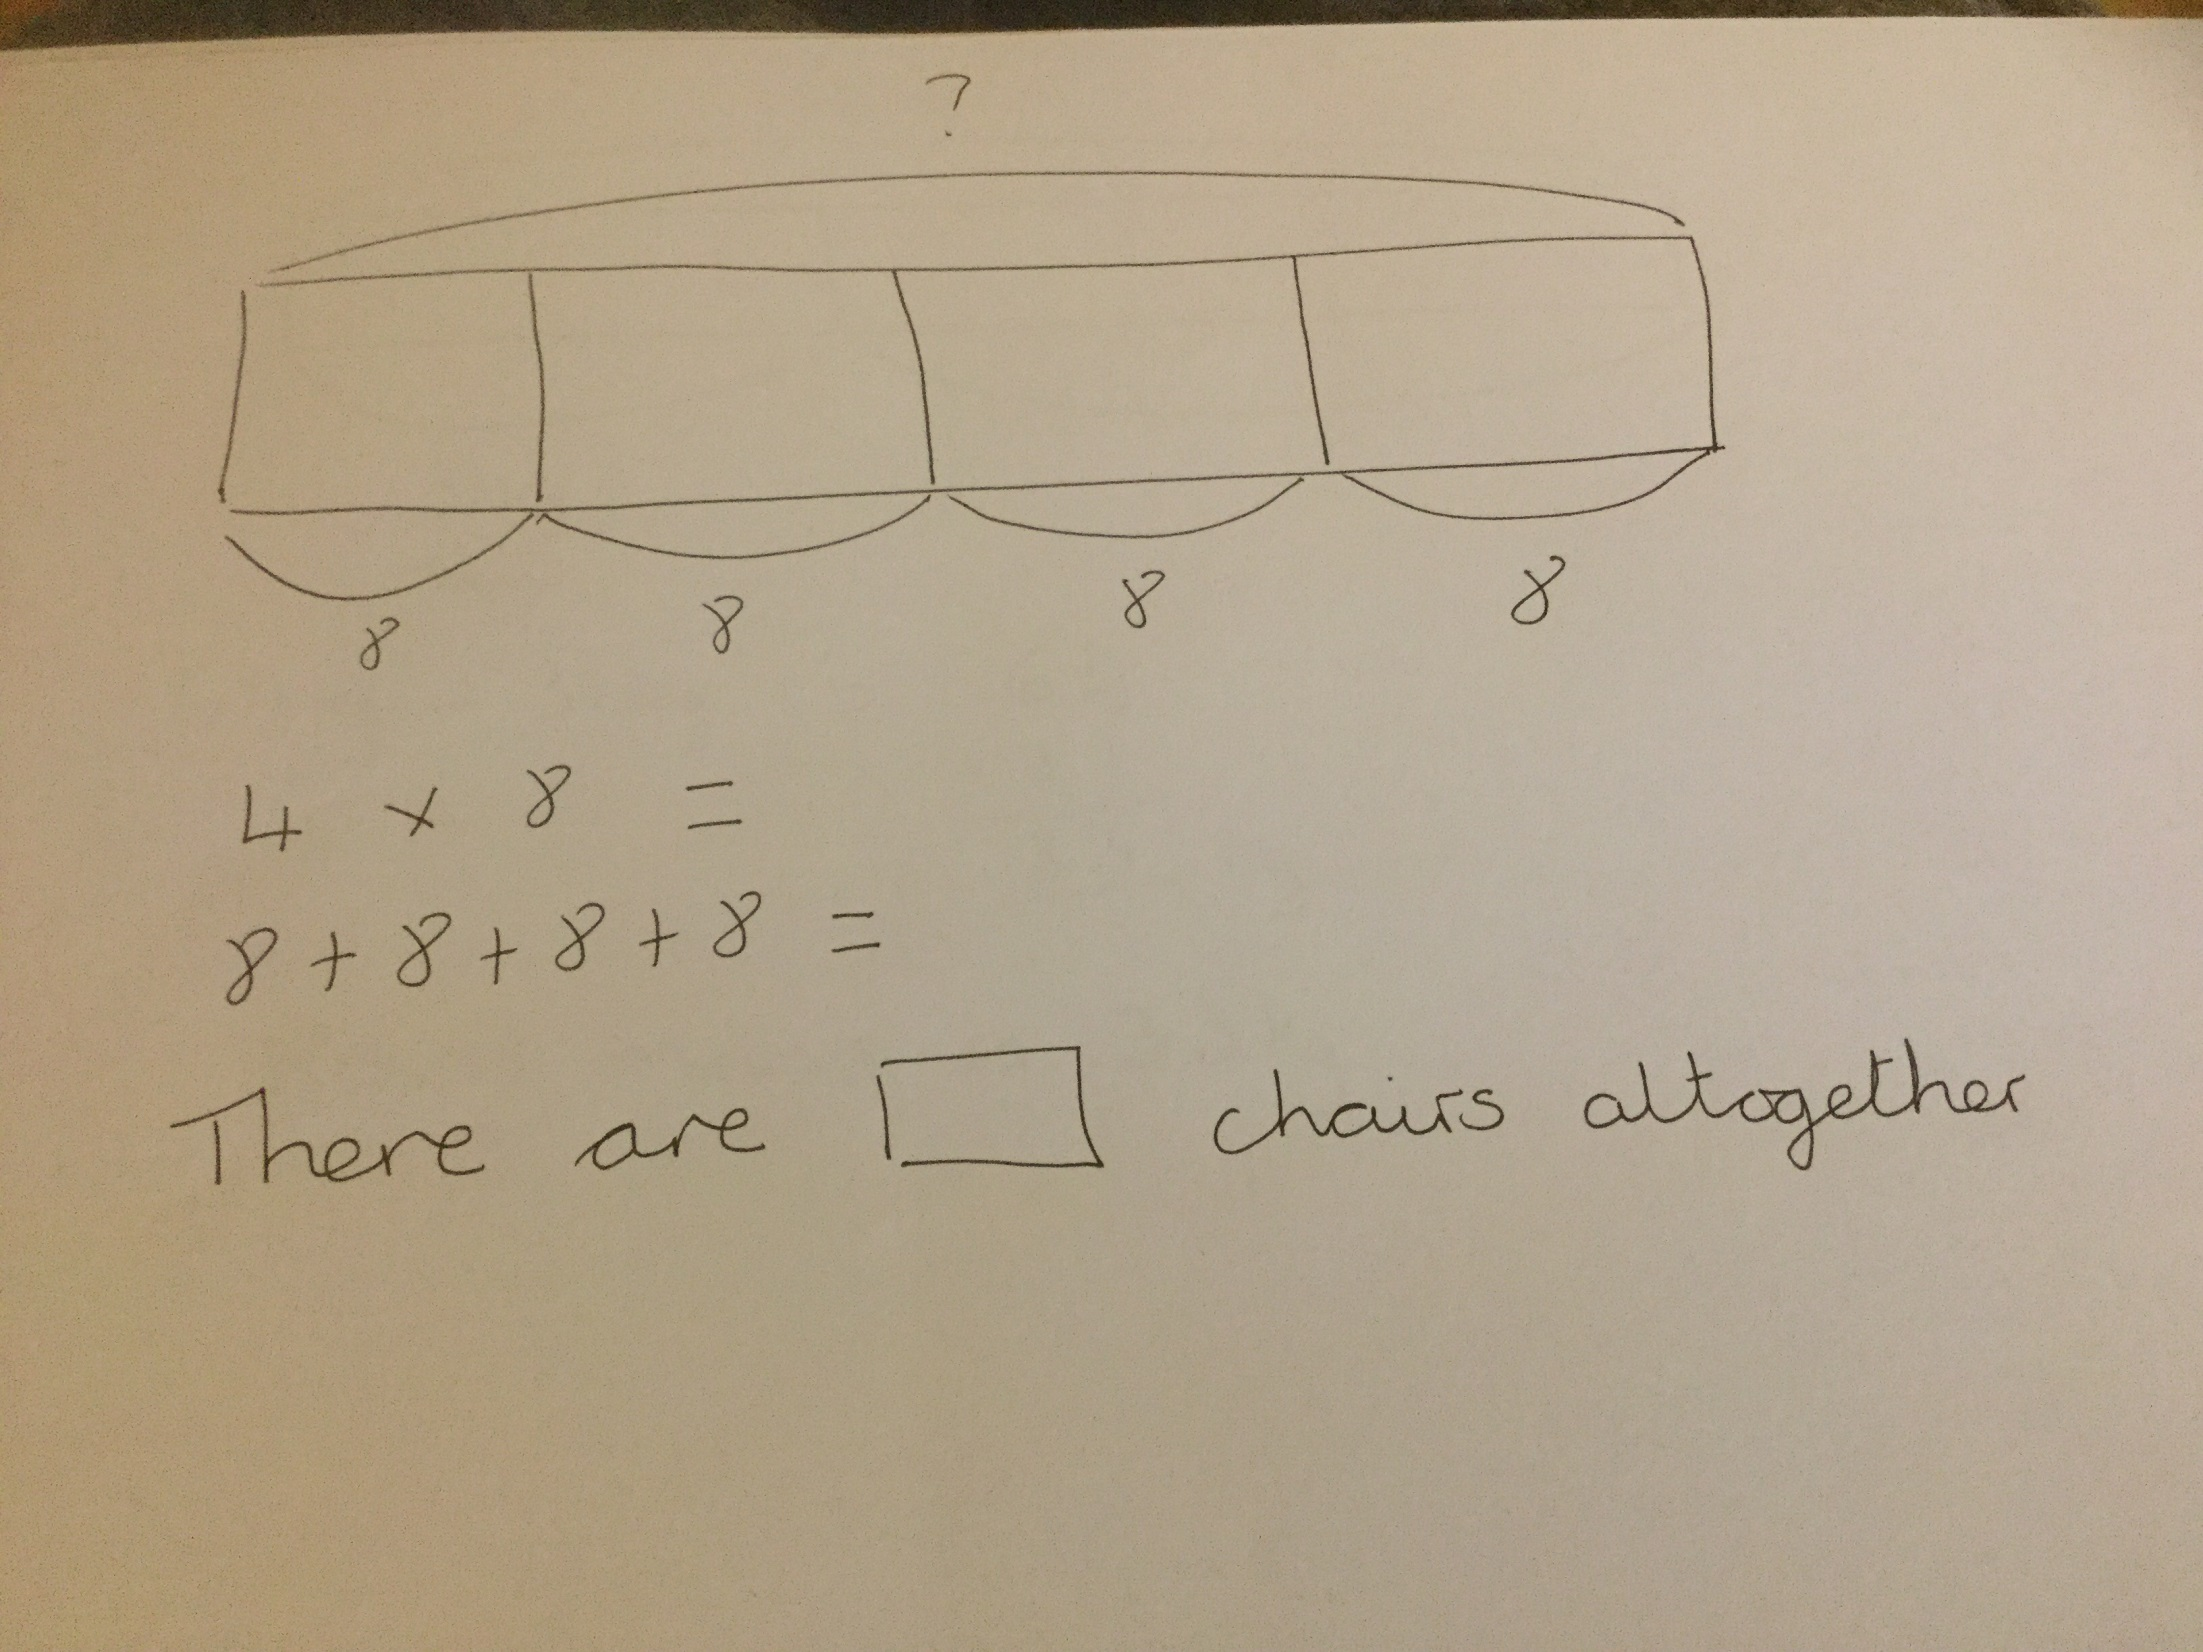 ?
8 8 8 8
4 × 8 =
8 + 8 + 8 + 8 =
There are chairs altogether